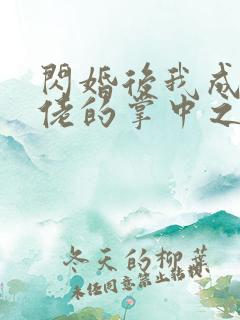 閃婚後我成
佬的掌中之
冬天的柳葉
未經同意禁止轉載